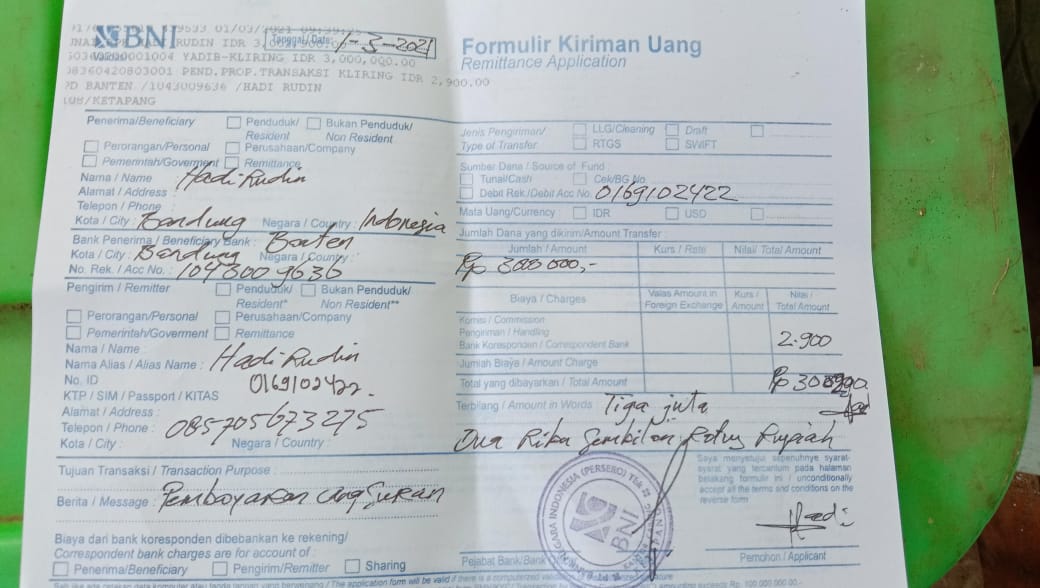 BNI
Tanggal/Date: 1-3-2021
Formulir Kiriman Uang
Remittance Application
Validasi
RUDIN IDR
YADIB-KLIRING IDR 3,000,000.00
08360420803001 PEND.PROP.TRANSAKSI KLIRING IDR 2,900.00
BANTEN /1043009636 /HADI RUDIN
/KETAPANG
Penerima/Beneficiary Penduduk/ Resident Bukan Penduduk/ Non Resident
Perorangan/Personal Perusahaan/Company
Pemerintah/Goverment Remittance
Nama / Name : Hadi Rudin
Alamat / Address :
Telepon / Phone :
Kota / City : Bandung Negara / Country : Indonesia
Bank Penerima / Beneficiary Bank : Banten
Kota / City : Bandung Negara / Country :
No. Rek. / Acc No. : 1043009636
Pengirim / Remitter Penduduk/ Resident* Bukan Penduduk/ Non Resident**
Perorangan/Personal Perusahaan/Company
Pemerintah/Goverment Remittance
Nama / Name :
Nama Alias / Alias Name : Hadi Rudin
No. ID 0169102422
KTP / SIM / Passport / KITAS
Alamat / Address :
Telepon / Phone : 085705673275
Kota / City : Negara / Country :
Tujuan Transaksi / Transaction Purpose :
Berita / Message : Pembayaran angsuran
Biaya dari bank koresponden dibebankan ke rekening/
Correspondent bank charges are for account of :
Penerima/Beneficiary Pengirim/Remitter Sharing
Jenis Pengiriman/ Type of Transfer : LLG/Clearing Draft
RTGS SWIFT
Sumber Dana / Source of Fund :
Tunai/Cash Cek/BG No.
Debit Rek./Debit Acc No. 0169102422
Mata Uang/Currency : IDR USD
Jumlah Dana yang dikirim/Amount Transfer :
Jumlah / Amount Kurs / Rate Nilai/ Total Amount
Biaya / Charges Valas Amount in Foreign Exchange Kurs / Amount Nilai / Total Amount
Komisi / Commission
Pengiriman / Handling 2.900
Bank Koresponden / Correspondent Bank
Jumlah Biaya / Amount Charge
Total yang dibayarkan / Total Amount
Terbilang / Amount in Words : Tiga juta
Dua Ribu Sembilan Ratus Rupiah
Saya menyetujui sepenuhnya syarat-
syarat yang tercantum pada halaman
belakang formulir ini / unconditionally
accept all the terms and conditions on the
reverse form
BNI
Hadi
Pejabat Bank/Bank
Pemohon / Applicant